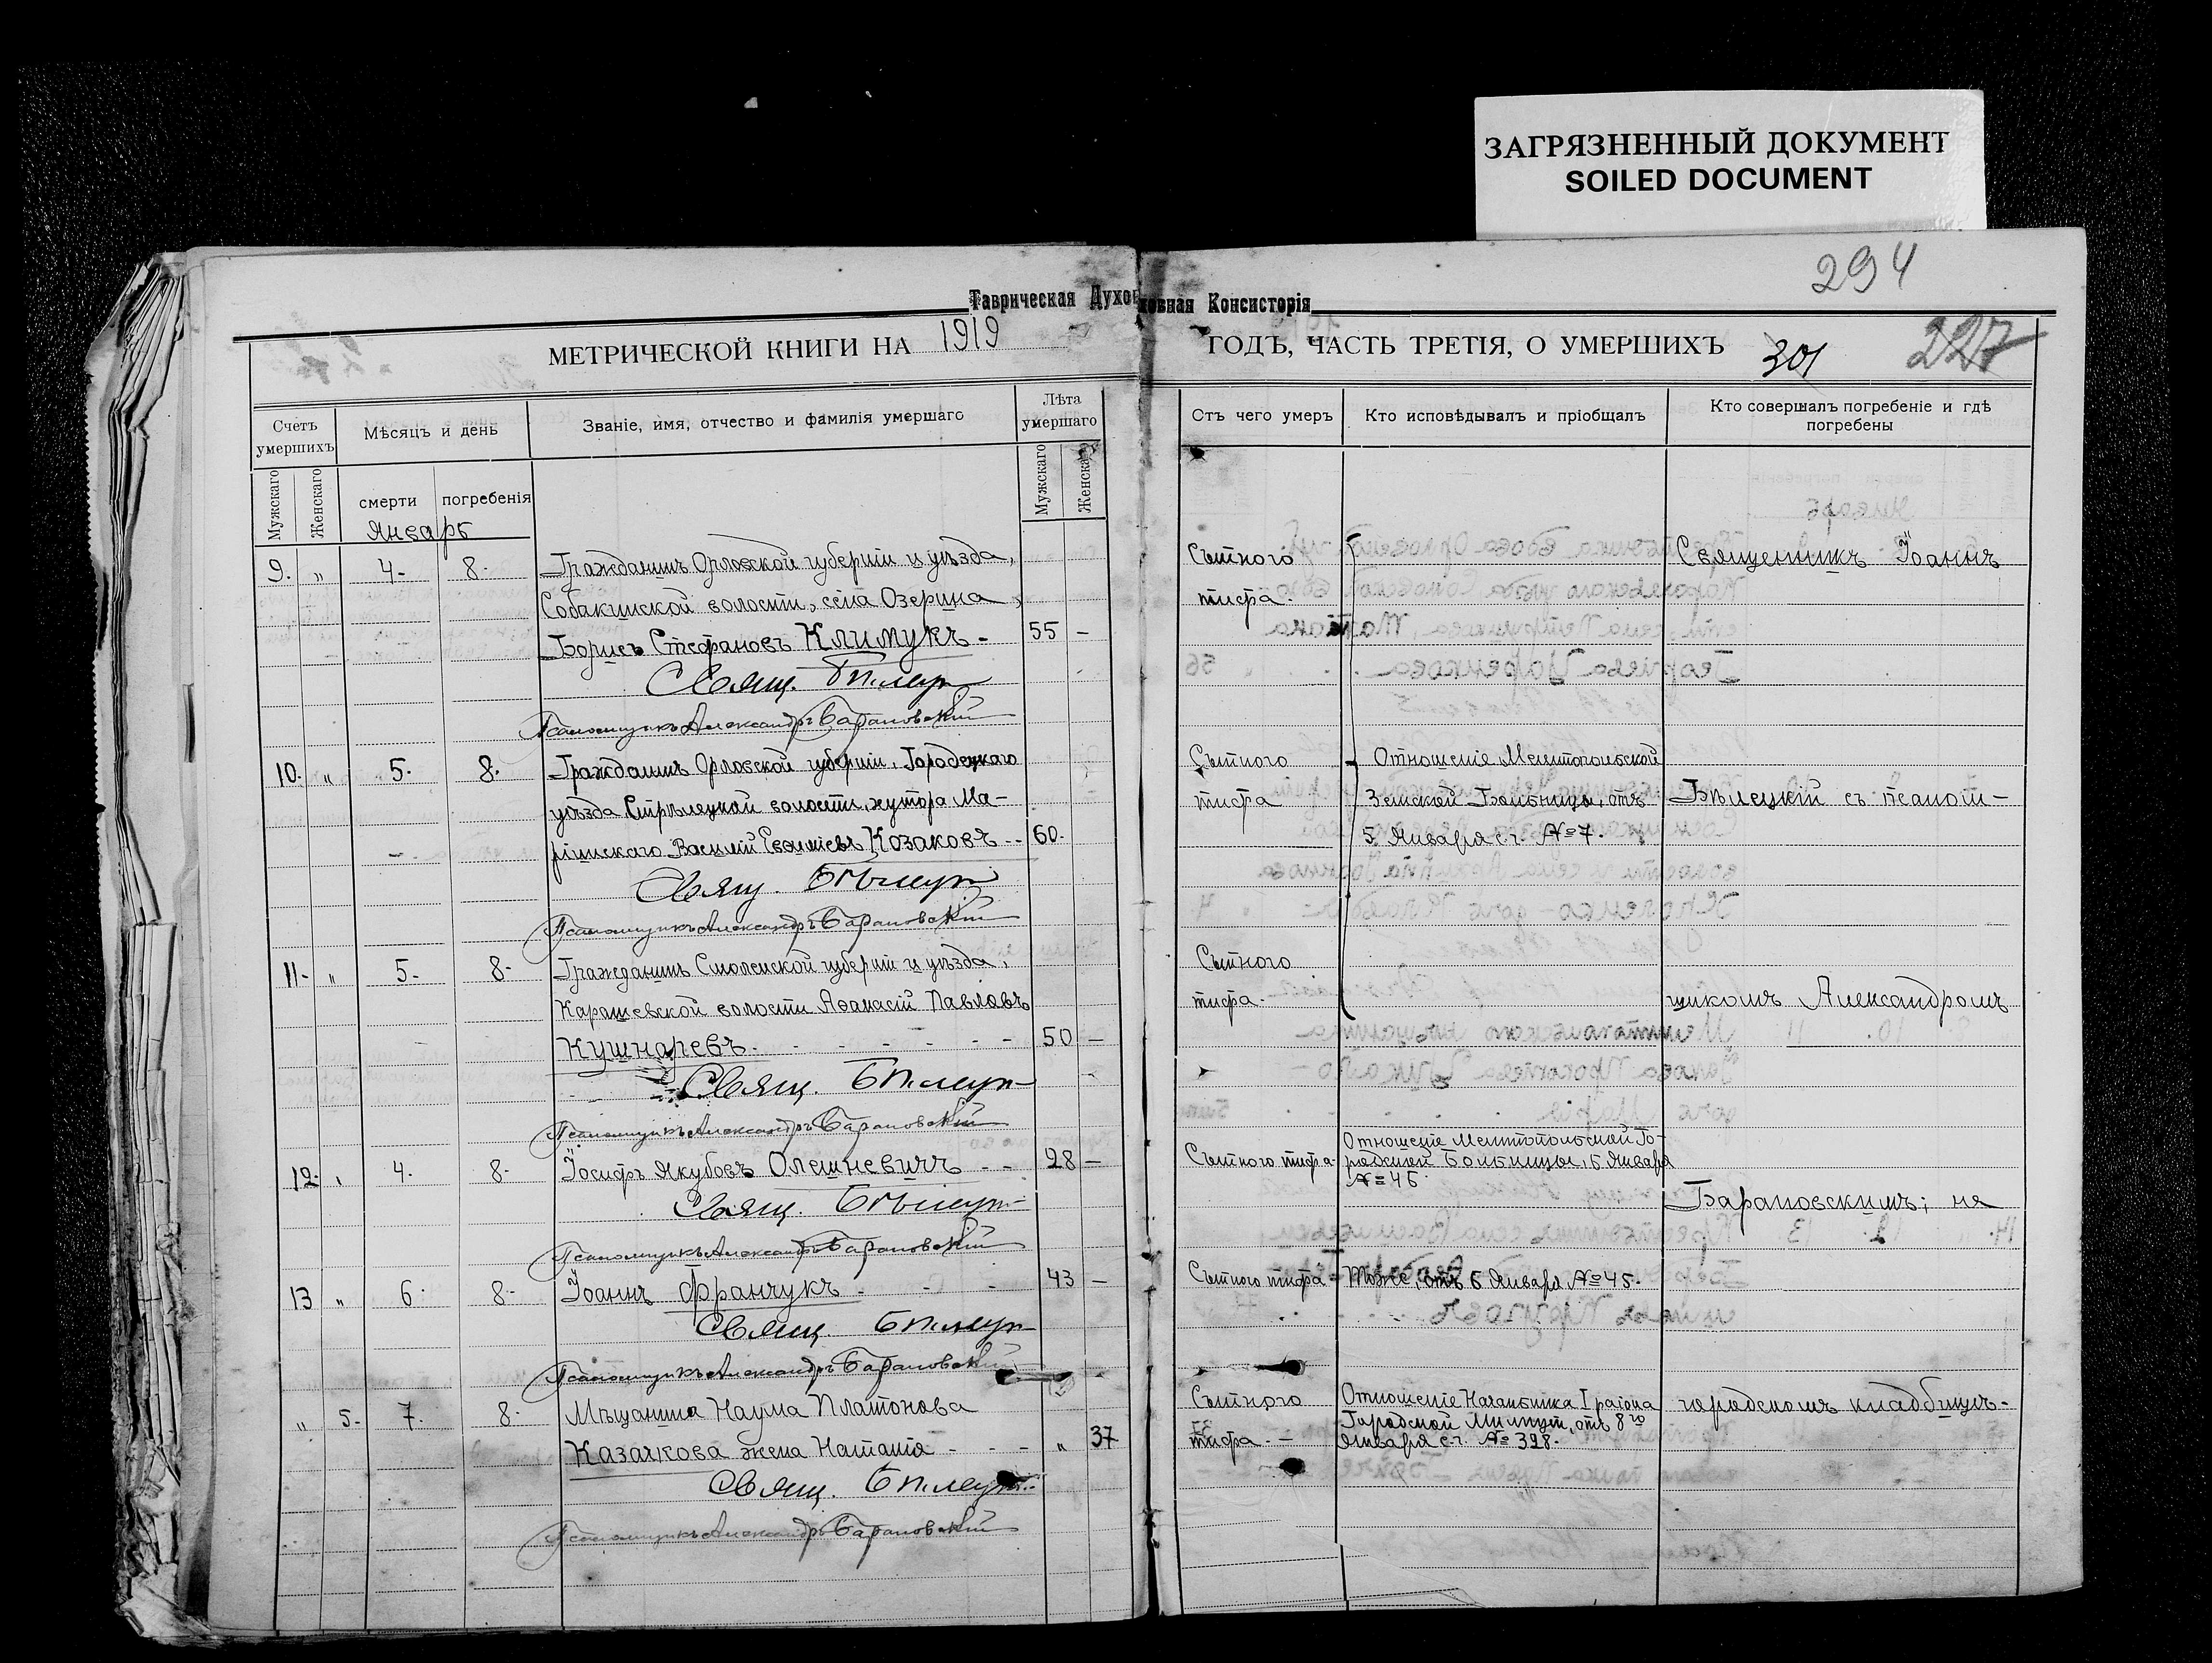 ЗАГРЯЗНЕННЫЙ ДОКУМЕНТ
SOILED DOCUMENT
294
Таврическая Духовная Консисторія
МЕТРИЧЕСКОЙ КНИГИ НА 1919
ГОДЪ, ЧАСТЬ ТРЕТІЯ, О УМЕРШИХЪ
301
227
Счетъ умершихъ
Мѣсяцъ и день
Званіе, имя, отчество и фамилія умершаго
Лѣта умершаго
Мужскаго
Женскаго
смерти
погребенія
Мужскаго
Женскаго
Январь
9. " 4- 8-
Гражданинъ Орловской губерніи и уѣзда,
Собакинской волости, села Озерина
Борисъ Стефановъ Климукъ - 55 -
Свящ. Бѣлецк
Псаломщикъ Александръ Барановскій
10. " 5. 8.
Гражданинъ Орловской губерніи, Городецкаго
уѣзда Стрѣлецкой волости, хутора Ма-
ріинскаго Василій Козаковъ -- 60.
Свящ. Бѣлецк
Псаломщикъ Александръ Барановскій
11- " 5- 8-
Гражданинъ Смоленской губерніи и уѣзда,
волости Аѳанасій Павловъ
Кушнаревъ - - - - - - 50 -
Свящ. Бѣлецк
Псаломщикъ Александръ Барановскій
12. " 4. 8-
Іосифъ Якубовъ Олешневичъ - - 28 -
Свящ. Бѣлецк
Псаломщикъ Александръ Барановскій
13 " 6. 8-
Іоаннъ Франчукъ - - - 43 -
Свящ. Бѣлецк
Псаломщикъ Александръ Барановскій
" 5. 7. 8.
Мѣщанина Наума Платонова
Казачкова жена Наталія - - - " 37
Свящ. Бѣлецк
Псаломщикъ Александръ Барановскій
Отъ чего умеръ
Кто исповѣдывалъ и пріобщалъ
Кто совершалъ погребеніе и гдѣ погребены
Сыпного
тифа.
Сыпного
тифа
Отношеніе Мелитопольской
Земской Больницы, отъ
5 Января с.г. №7.
Сыпного
тифа.
Сыпного тифа.
Отношеніе Мелитопольской Го-
родской Больницы, 5 Января
№ 46.
Сыпного тифа
Тоже, отъ 6 Января № 45.
Сыпного
тифа. -
Отношеніе Начальника I района
Городской Милиціи, отъ 8го
Января с.г. № 398.
Священникъ Іоаннъ
Бѣлецкій съ псалом-
щикомъ Александромъ
Барановскимъ; на
городскомъ кладбищѣ.